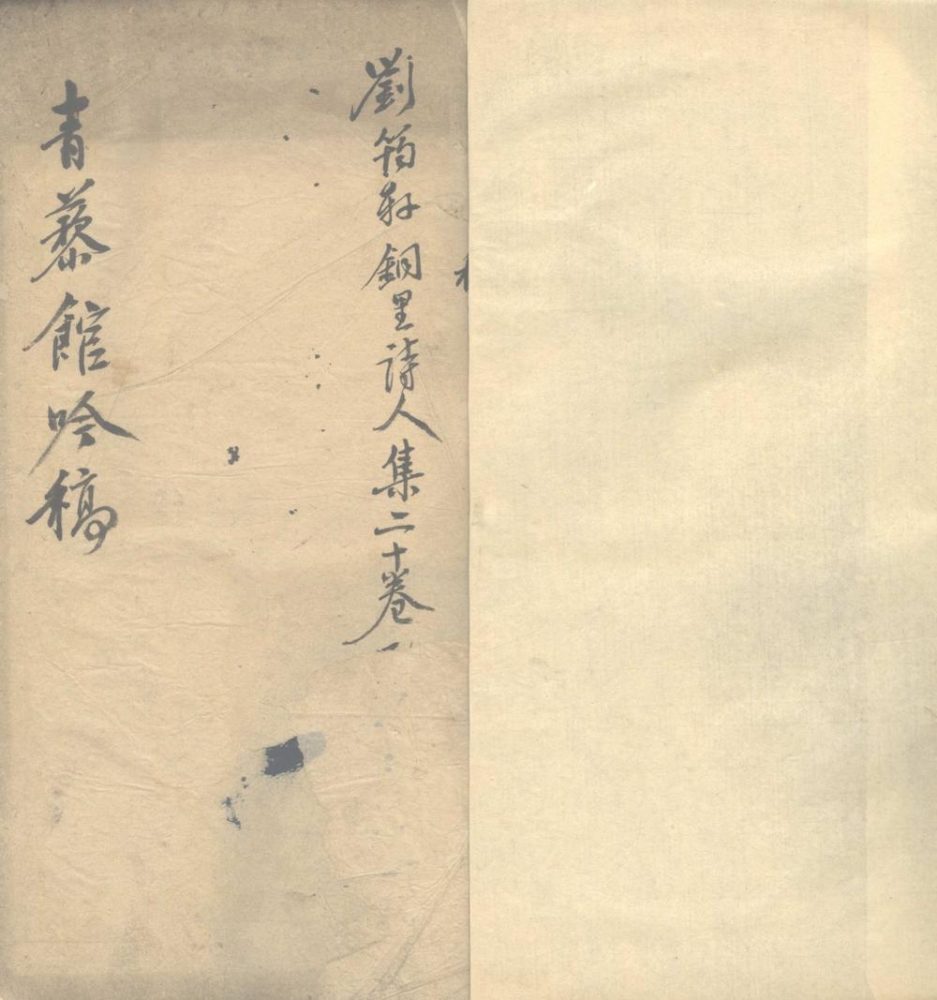 劉筠軒銅里詩人集二十卷
青藜館吟稿